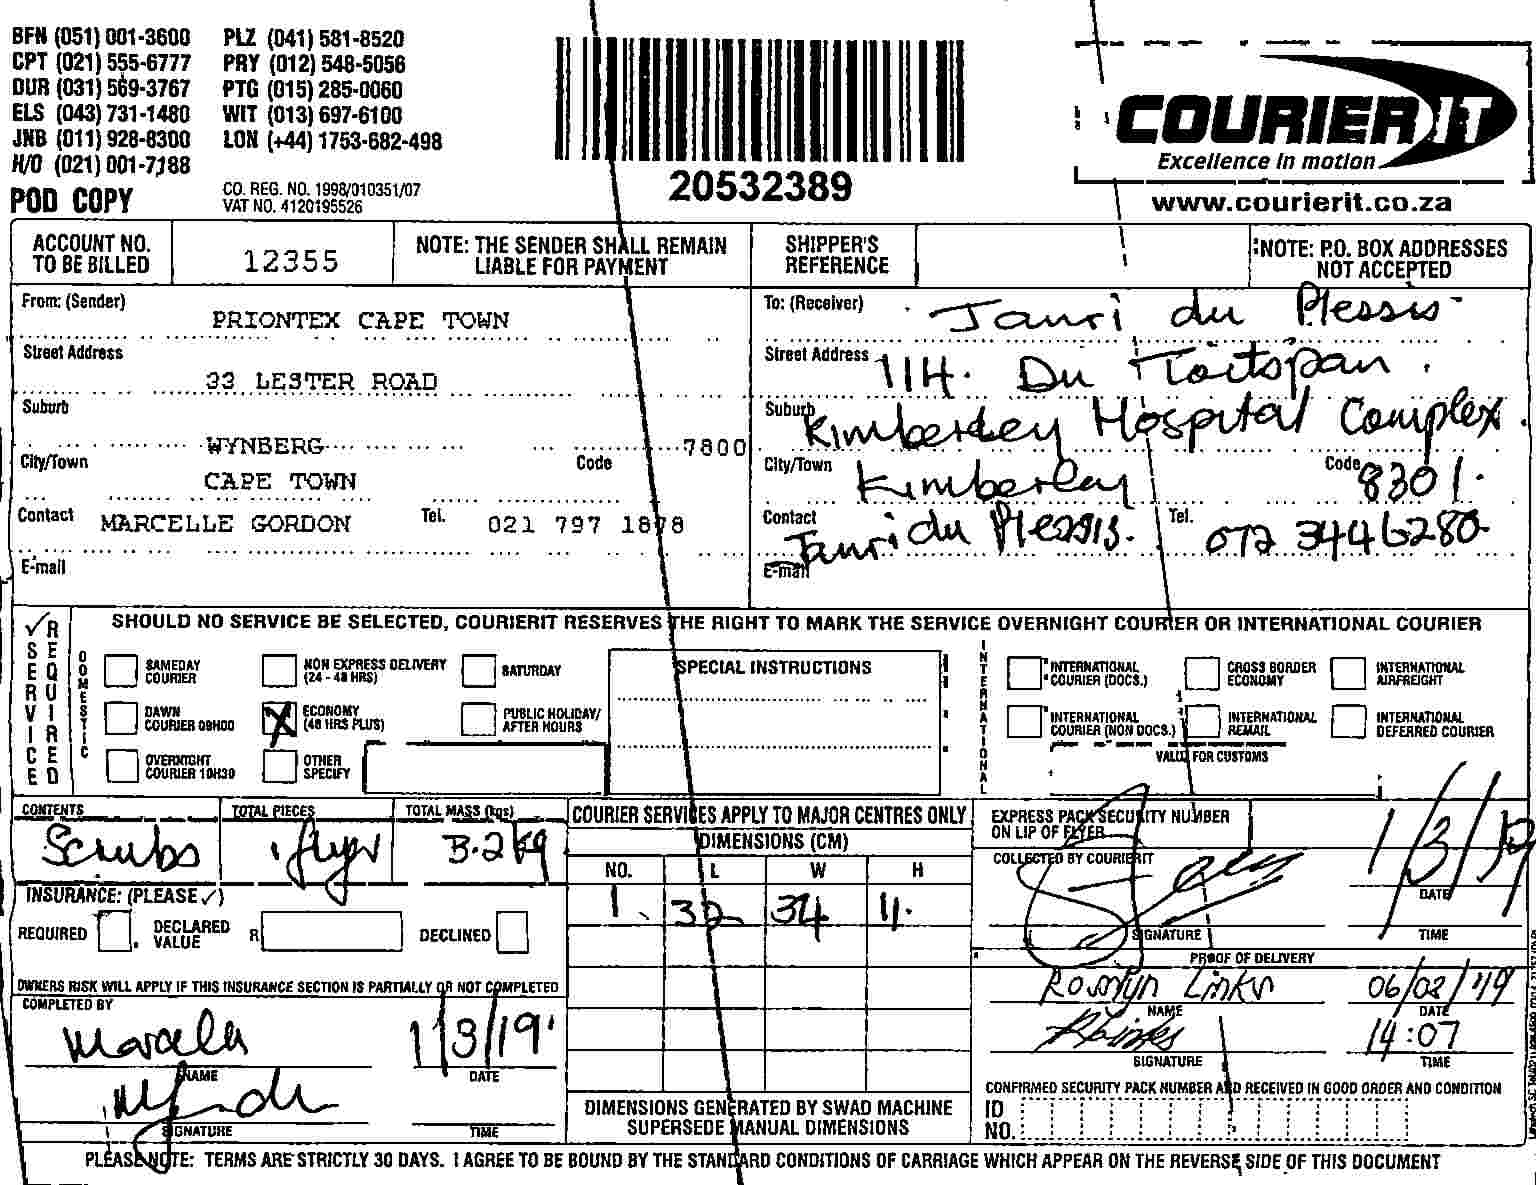 BFN (051) 001-3600 PLZ (041) 581-8520
CPT (021) 555-6777 PRY (012) 548-5056
DUR (031) 569-3767 PTG (015) 285-0060
ELS (043) 731-1480 WIT (013) 697-6100
JNB (011) 928-8300 LON (+44) 1753-682-498
H/O (021) 001-7188
POD COPY
CO. REG. NO. 1998/010351/07
VAT NO. 4120195526
20532389
COURIER IT
Excellence in motion
www.courierit.co.za
ACCOUNT NO. TO BE BILLED 12355
NOTE: THE SENDER SHALL REMAIN LIABLE FOR PAYMENT
SHIPPER'S REFERENCE
NOTE: P.O. BOX ADDRESSES NOT ACCEPTED
From: (Sender) PRIONTEX CAPE TOWN
Street Address 33 LESTER ROAD
Suburb WYNBERG
City/Town CAPE TOWN Code 7800
Contact MARCELLE GORDON Tel. 021 797 1878
E-mail
To: (Receiver) Jauri du Plessis
Street Address 114. Du Toitspan.
Suburb Kimberley Hospital Complex.
City/Town Kimberley Code 8301.
Contact Jauri du Plessis. Tel. 072 3446280
E-mail
✓ SERVICE REQUIRED
SHOULD NO SERVICE BE SELECTED, COURIERIT RESERVES THE RIGHT TO MARK THE SERVICE OVERNIGHT COURIER OR INTERNATIONAL COURIER
DOMESTIC
SAMEDAY COURIER
NON EXPRESS DELIVERY (24 - 48 HRS)
SATURDAY
DAWN COURIER 09H00
X ECONOMY (48 HRS PLUS)
PUBLIC HOLIDAY/ AFTER HOURS
OVERNIGHT COURIER 10H30
OTHER SPECIFY
SPECIAL INSTRUCTIONS
INTERNATIONAL
INTERNATIONAL COURIER (DOCS.)
CROSS BORDER ECONOMY
INTERNATIONAL AIRFREIGHT
INTERNATIONAL COURIER (NON DOCS.)
INTERNATIONAL REMAIL
INTERNATIONAL DEFERRED COURIER
VALUE FOR CUSTOMS
CONTENTS Scrubs
TOTAL PIECES 1 flyer
TOTAL MASS (kgs) 3.2kg
INSURANCE: (PLEASE ✓)
REQUIRED DECLARED VALUE R DECLINED
OWNERS RISK WILL APPLY IF THIS INSURANCE SECTION IS PARTIALLY OR NOT COMPLETED
COMPLETED BY
1/3/19
NAME DATE
SIGNATURE TIME
COURIER SERVICES APPLY TO MAJOR CENTRES ONLY
DIMENSIONS (CM)
NO. L W H
1 32 34 11
DIMENSIONS GENERATED BY SWAD MACHINE
SUPERSEDE MANUAL DIMENSIONS
EXPRESS PACK SECURITY NUMBER
ON LIP OF FLYER
COLLECTED BY COURIERIT
1/3/19
DATE
SIGNATURE TIME
PROOF OF DELIVERY
Roselyn Links 06/03/19
NAME DATE
14:07
SIGNATURE TIME
CONFIRMED SECURITY PACK NUMBER AND RECEIVED IN GOOD ORDER AND CONDITION
ID NO.
PLEASE NOTE: TERMS ARE STRICTLY 30 DAYS. I AGREE TO BE BOUND BY THE STANDARD CONDITIONS OF CARRIAGE WHICH APPEAR ON THE REVERSE SIDE OF THIS DOCUMENT